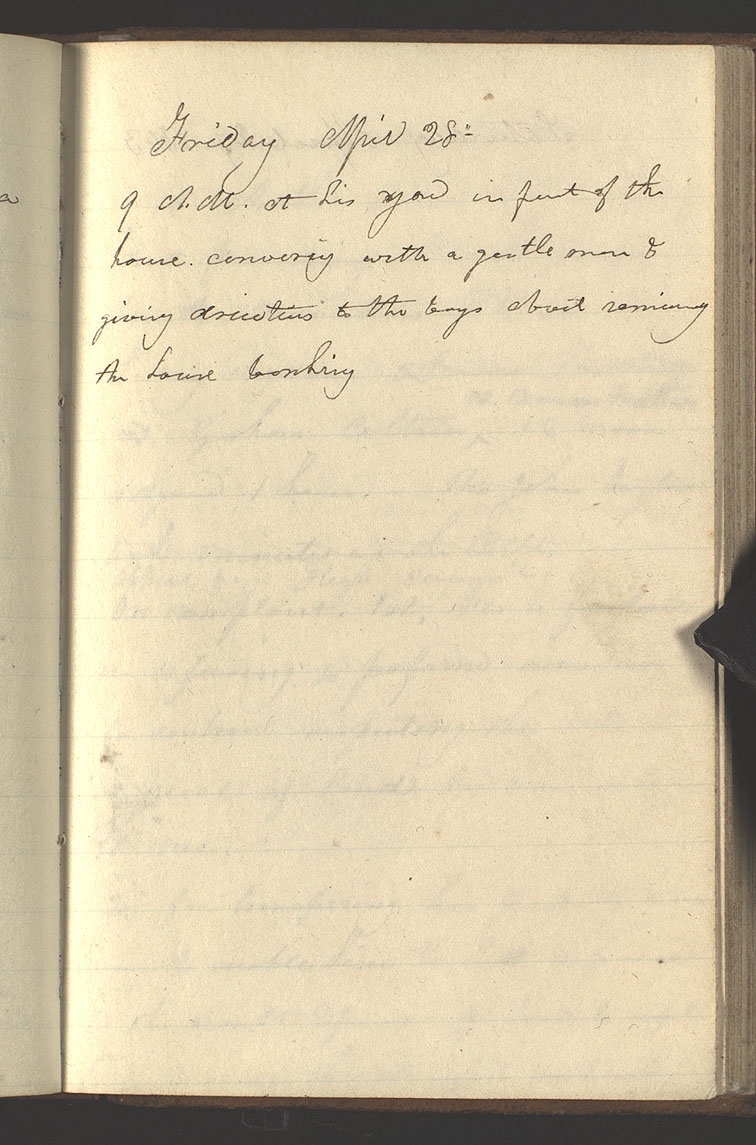 Friday April 28"
9 A.M. at his yard in front of the
house. conversing with a gentle man &
giving directions to the boys about removing
the house banking